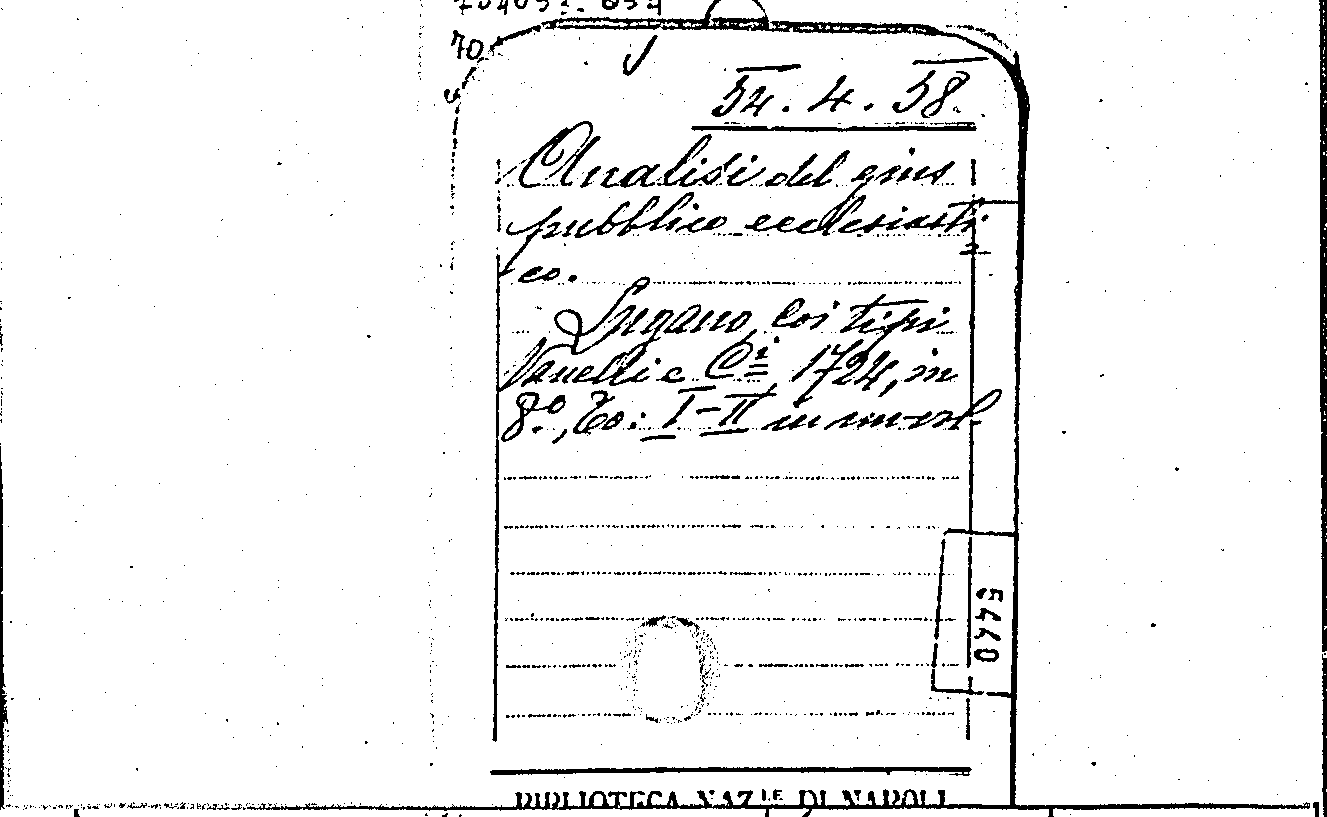 70
54. 4. 58.
Analisi del gius
pubblico ecclesiasti
co.
Lugano, coi tipi
Vanelli e Ci 1724, in
8.º, To: I-II in un vol.
5440
BIBLIOTECA NAZ.LE DI NAPOLI